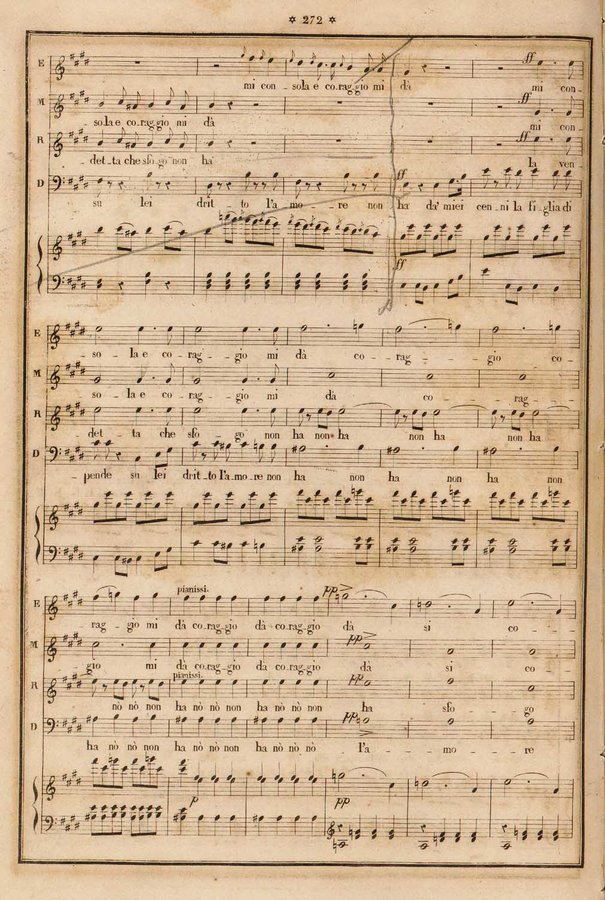 ✡ 272 ✡
E
mi con - sola e co.rag.gio mi dà mi con
ff
M
sola e co.rag.gio mi dà mi con
ff
R
det - ta che sfo - go non ha la ven
D
ff
su lei drit - to l'a - mo - re non ha da' miei cen - ni la fi - glia di
ff
E
so - la e co - rag - gio mi dà co - rag - gio co -
M
so - la e co - rag - gio mi dà co - rag -
R
det - ta che sfo - go non ha non ha non ha non ha
D
pende su lei drit - to l'a - mo - re non ha non ha non ha non
E
pianissi. pp
rag - gio mi dà co.rag - gio dà co.rag - gio dà si co -
M
pp
gio mi dà co.rag - gio dà co.rag - gio dà si co
R
pianissi. pp
nò nò non ha nò nò non ha nò nò non ha sfo - go
D
pp
ha nò nò non ha nò nò non ha nò nò nò l'a - mo - re
p pp